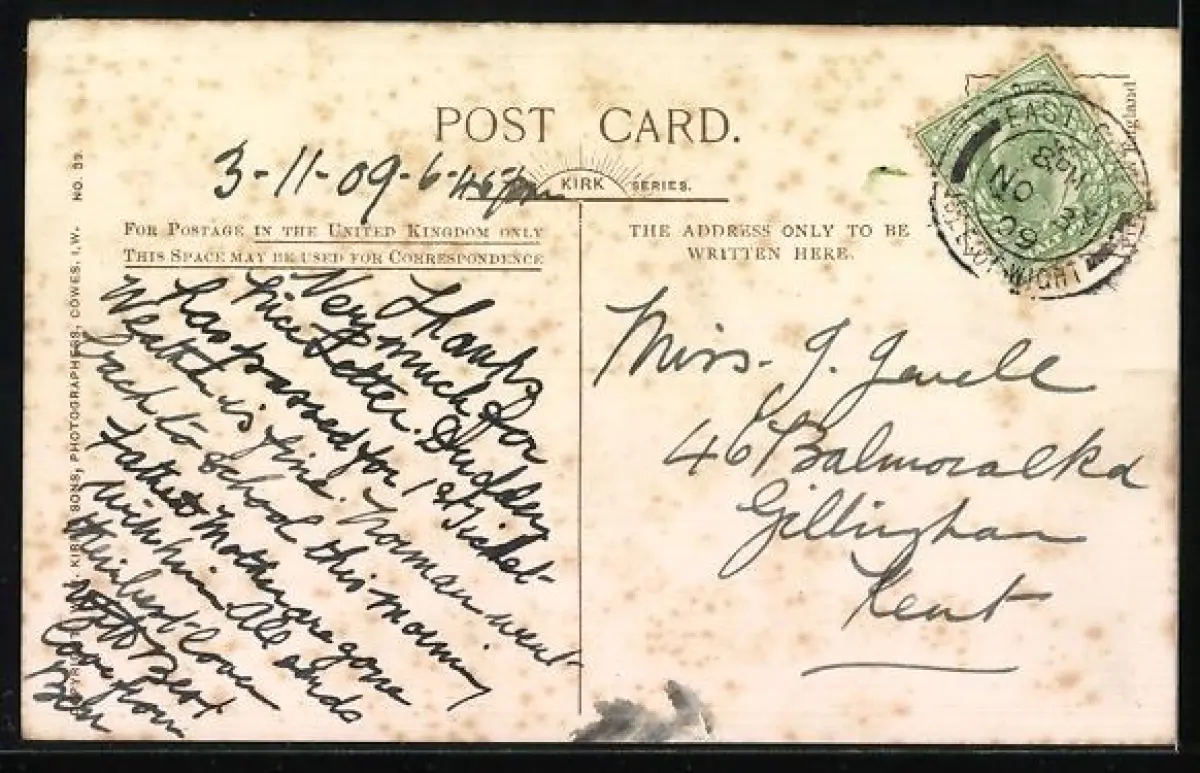 POST CARD.
3-11-09-6-45pm
KIRK SERIES.
FOR POSTAGE IN THE UNITED KINGDOM ONLY
THIS SPACE MAY BE USED FOR CORRESPONDENCE
THE ADDRESS ONLY TO BE
WRITTEN HERE.
Thanks
Very much for
nice Letter. Dudley
has passed for 1st Ticket
Weather is fine. Norman went
back to School this morning
Father Mother are gone
with him All sends
their best love
with Best
love from
Ben
Miss. J. Jewell
46 Balmoral Rd
Gillingham
Kent
EAST
8 PM
NO 3
09
ISLE OF WIGHT
KIRK & SONS, PHOTOGRAPHERS, COWES, I.W. NO. 39
England